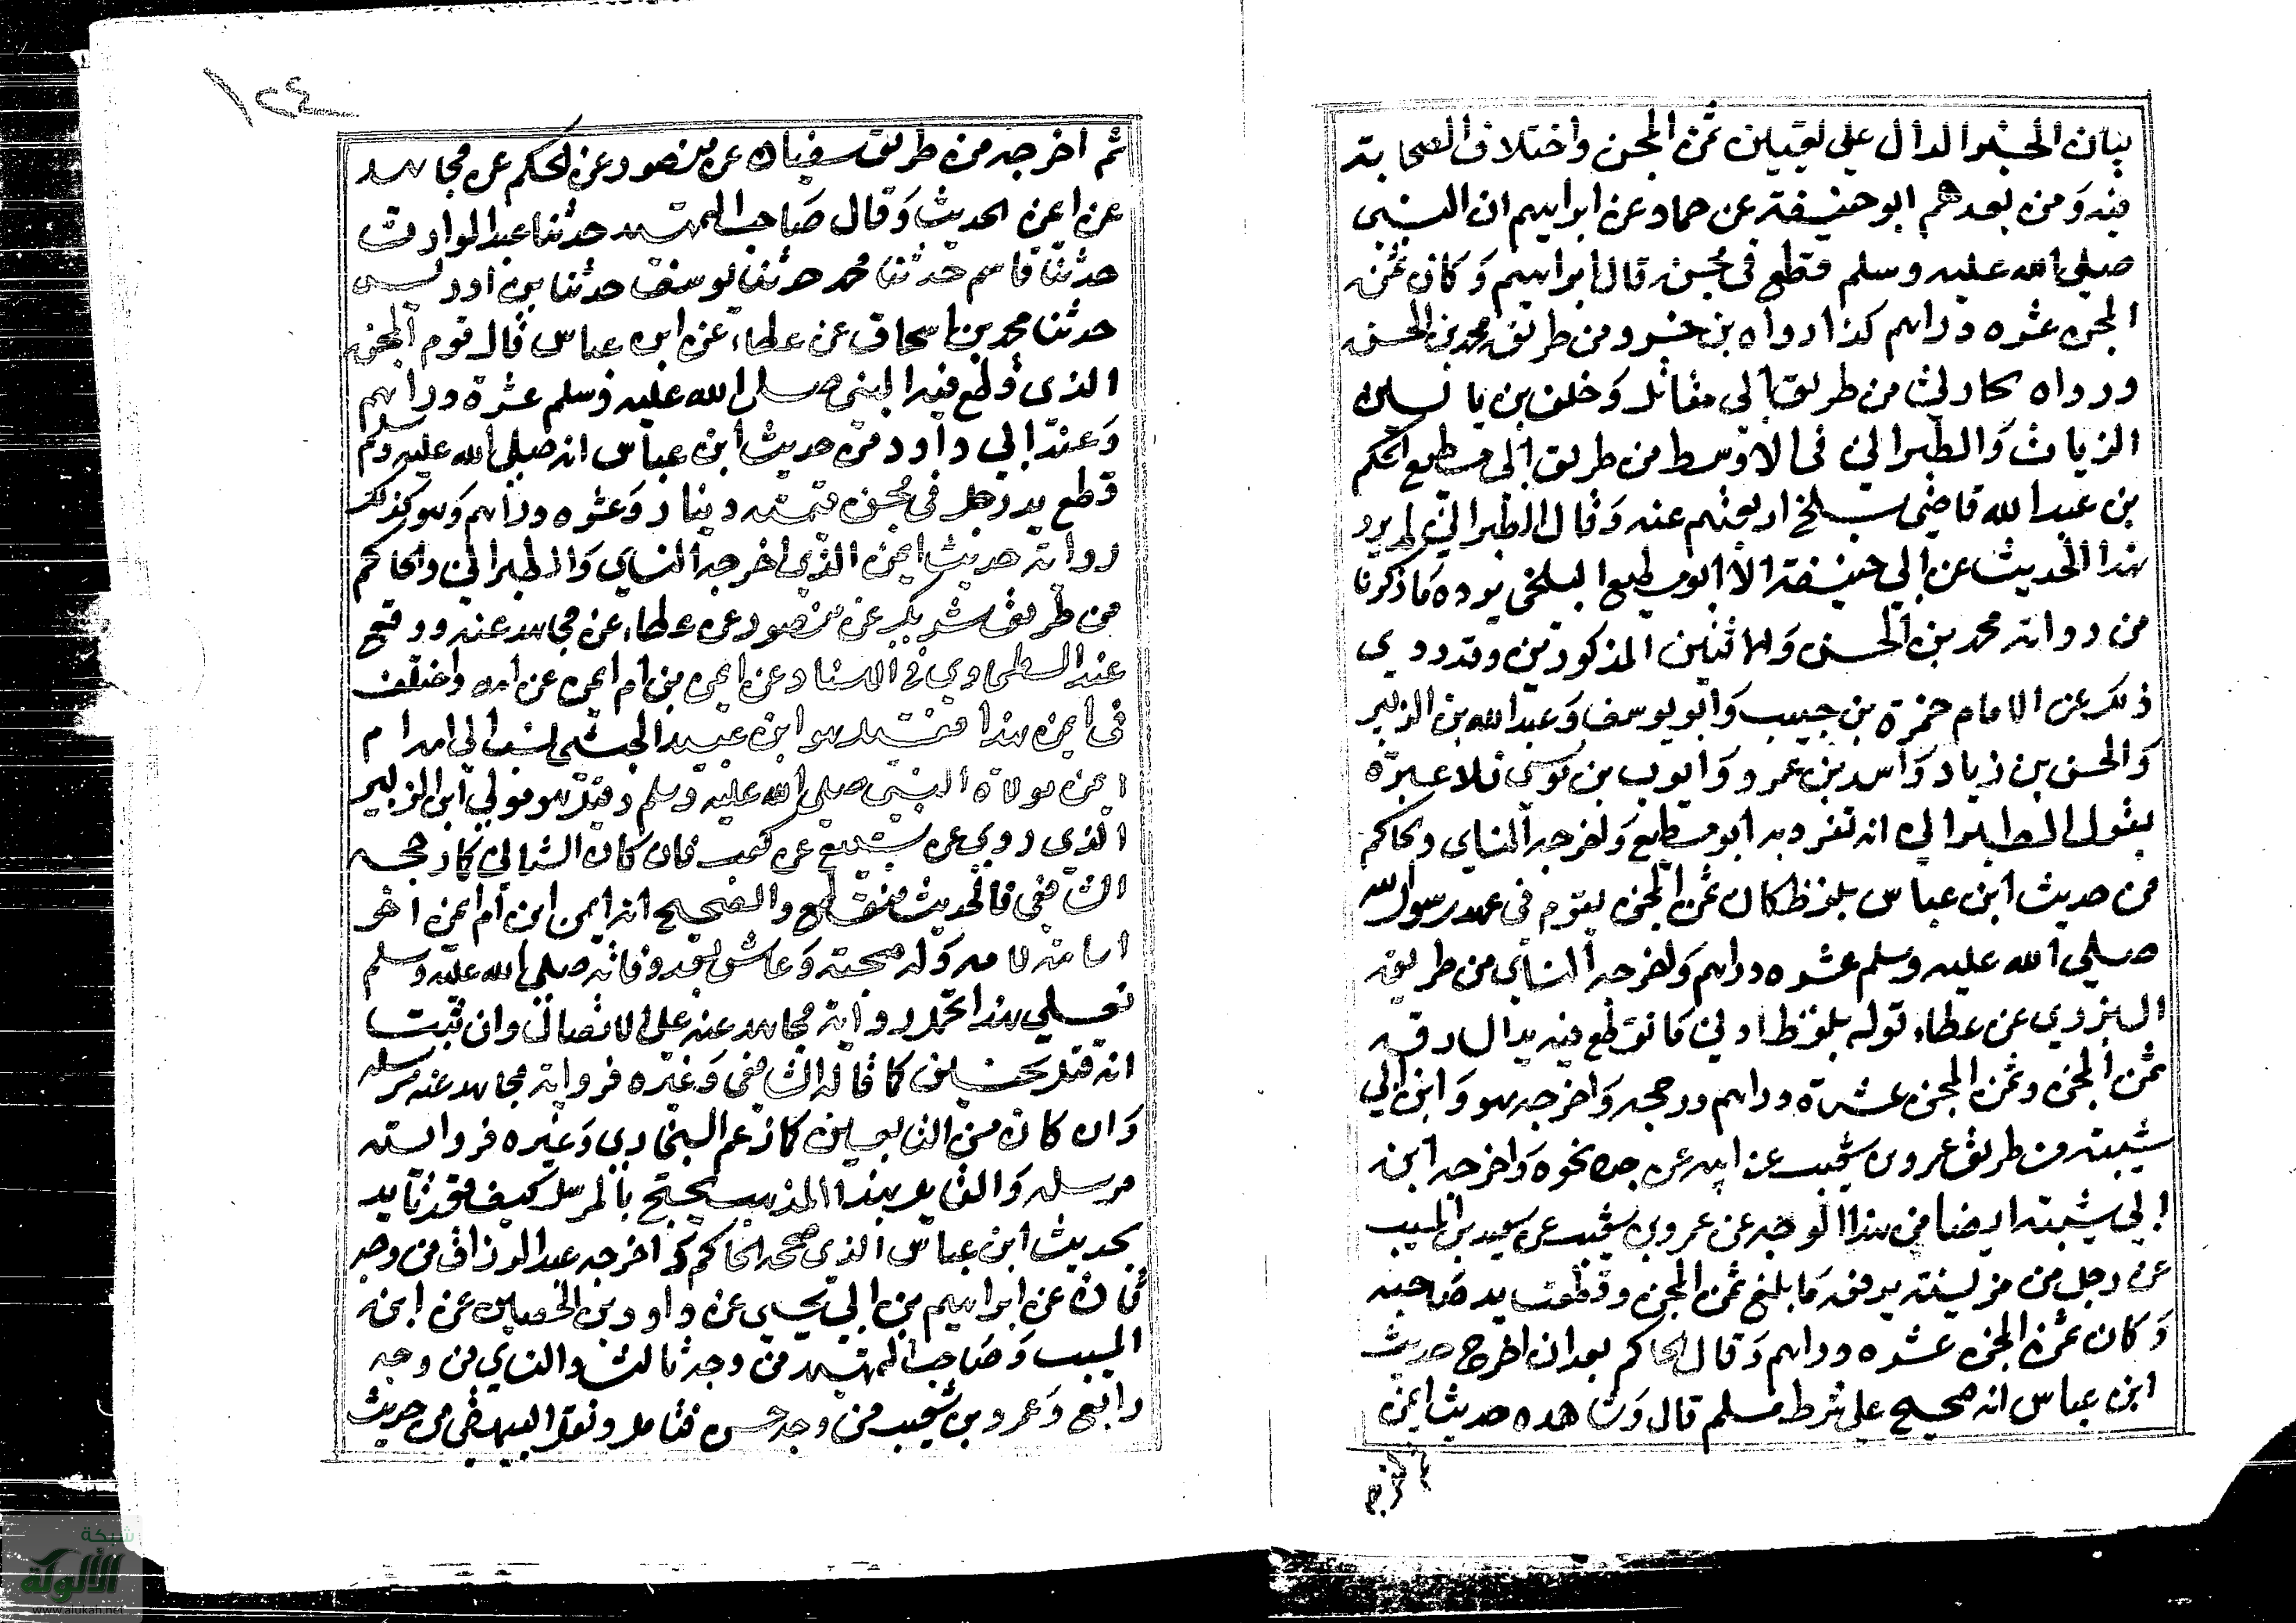 بيان الخبر الدال على تعيين ثمن المجن واختلاف الصحابة
فيه ومن بعدهم ابو حنيفة عن حماد عن ابراهيم ان النبى
صلى الله عليه وسلم قطع فى مجن قال ابراهيم وكان ثمن
المجن عشره دراهم كذا رواه بن خسرو من طريق محمد بن الحسن
ورواه الحارثى من طريق ابى مقاتل وخلف بن ياسين
الزيات والطبرانى فى الاوسط من طريق ابى مطيع الحكم
بن عبد الله قاضى بلخ اربعتهم عنه وقال الطبرانى لم يرو
هذا الحديث عن ابى حنيفة الا ابو مطيع البلخى يرده ما ذكرنا
من رواية محمد بن الحسن والاثنين المذكورين وقد روى
ذلك عن الامام حمزة بن حبيب وابو يوسف وعبد الله بن الزبير
والحسن بن زياد واسد بن عمرو وايوب بن موسى فلا عبرة
بقول الطبرانى انه تفرد به ابو مطيع واخرجه النساى والحاكم
من حديث ابن عباس بلفظ كان ثمن المجن يقوم فى عهد رسول الله
صلى الله عليه وسلم عشره دراهم واخرجه النساى من طريق
العزرمي عن عطاء قوله بلفظ ادنى ما تقطع فيه يد السارق
ثمن المجن وثمن المجن عشرة دراهم ورجحه واخرجه هو وابن ابى
شيبة من طريق عمرو بن شعيب عن ابيه عن جده نحوه واخرجه ابن
ابى شيبة ايضا من هذا الوجه عن عمرو بن شعيب عن سعيد بن المسيب
عن رجل من مزينة يرفعه ما بلغ ثمن المجن وقطعت يد صاحبه
وكان ثمن المجن عشره دراهم وقال الحاكم بعد ان اخرج حديث
ابن عباس انه صحيح على شرط مسلم قال وشاهده حديث ايمن
ثم اخرجه
١٢٤
ثم اخرجه من طريق سفيان عن منصور عن الحكم عن مجاهد
عن ايمن الحديث وقال صاحب التمهيد حدثنا عبد الوارث
حدثنا قاسم حدثنا محمد حدثنا يوسف حدثنا بن ادريس
حدثنا محمد بن اسحاق عن عطاء عن ابن عباس قال قوم المجن
الذى قطع فيه النبى صلى الله عليه وسلم عشرة دراهم
وعند ابى داود من حديث ابن عباس انه صلى الله عليه وسلم
قطع يد رجل فى مجن قيمته دينار وعشره دراهم وهو كذلك
رواية حديث ايمن الذى اخرجه النساى والطبرانى والحاكم
من طريق شريك عن منصور عن عطاء عن مجاهد عنه ووقع
عند الطحاوى فى الاسناد عن ايمن بن ام ايمن عن امه واختلف
فى ايمن هذا فقيل هو ابن عبيد الحبشى نسب الى امه ام
ايمن مولاة النبى صلى الله عليه وسلم وقيل هو مولى ابن الزبير
الذى روى عن تبيع عن كعب فان كان الثانى كما رجحه
الشافعى فالحديث منقطع والصحيح انه ايمن ابن ام ايمن اخو
اسامة لامه وله صحبة وعاش بعد وفاته صلى الله عليه وسلم
فعلى هذا تحمل رواية مجاهد عنه على الاتصال وان ثبت
انه قتل بحنين كما قاله الشافعى وغيره فرواية مجاهد عنه مرسلة
وان كان من التابعين كما زعم البخارى وغيره فروايته
مرسله والقايل بهذا المذهب يحتج بالمرسل كيف فقد تايد
بحديث ابن عباس الذى صححه الحاكم ثم اخرجه عبد الرزاق من وجه
ثان عن ابراهيم بن ابى يحيى عن داود بن الحصين عن ابن
المسيب وصاحب التمهيد من وجه ثالث والنساى من وجه
رابع وعمرو بن شعيب من وجه خمس فتامل ونقل البيهقى من حديث
شبكة
الألوكة
www.alukah.net